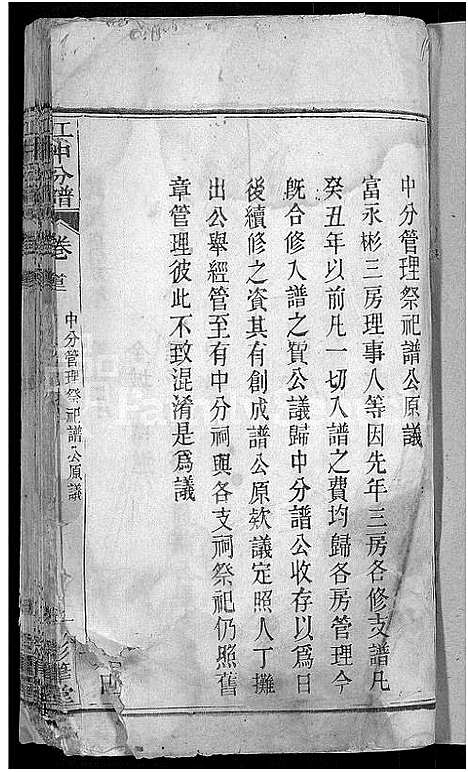 中分管理祭祀譜公原議
富永彬三房理事人等因先年三房各修支譜凡
癸丑年以前凡一切入譜之費均歸各房管理今
既合修入譜之貲公議歸中分譜公收存以爲日
後續修之資其有創成譜公原欵議定照人丁攤
出公舉經管至有中分祠與各支祠祭祀仍照舊
章管理彼此不致混淆是爲議
江中分譜
卷首
中分管理祭祀譜公原議